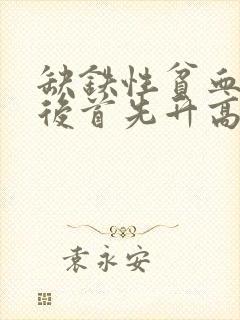 缺铁性贫血
后首先升高
袁永安